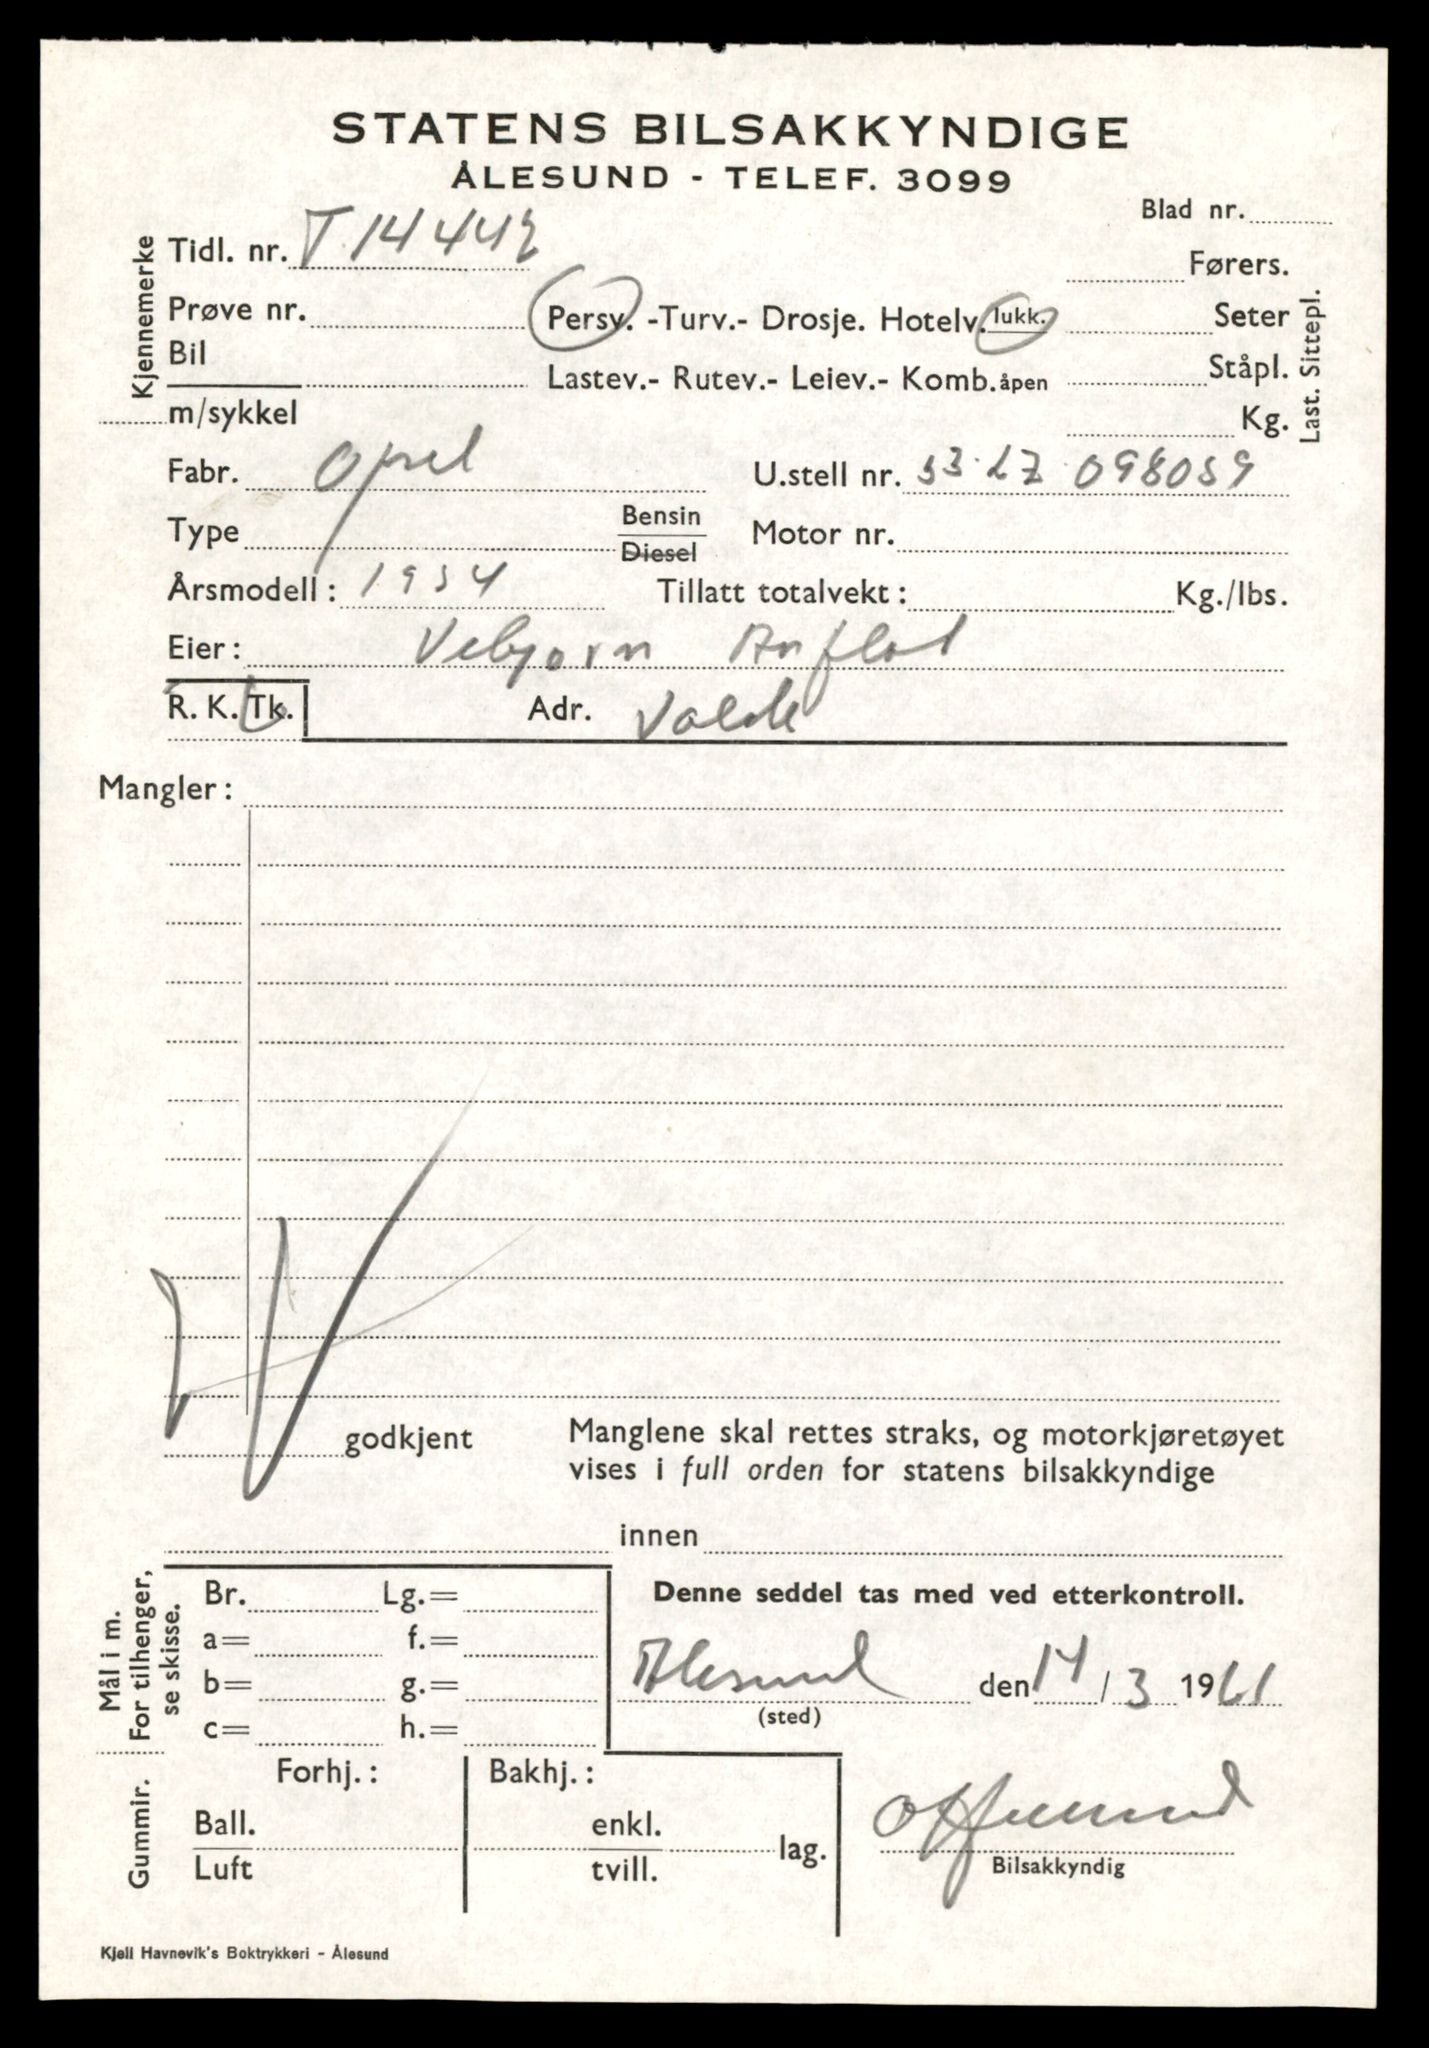 STATENS BILSAKKYNDIGE
ÅLESUND - TELEF. 3099
Blad nr.
Kjennemerke
Tidl. nr. T 14442
Førers.
Prøve nr.
Persv. -Turv.- Drosje. Hotelv. lukk.
Seter
Bil
Lastev.- Rutev.- Leiev.- Komb. åpen
Ståpl.
m/sykkel
Kg.
Last. Sittepl.
Fabr. Opel
U.stell nr. 53.LZ 098059
Type
Bensin
Diesel
Motor nr.
Årsmodell: 1954
Tillatt totalvekt: Kg./lbs.
Eier: Vebjørn
R. K. Tk.
Adr. Volda
Mangler:
godkjent
Manglene skal rettes straks, og motorkjøretøyet
vises i full orden for statens bilsakkyndige
innen
Mål i m.
For tilhenger,
se skisse.
Br. Lg.=
a= f.=
b= g.=
c= h.=
Denne seddel tas med ved etterkontroll.
Ålesund den 14/3 1961
(sted)
Gummir.
Forhj.: Bakhj.:
Ball. enkl.
lag.
Luft tvill.
Bilsakkyndig
Kjell Havnevik's Boktrykkeri - Ålesund